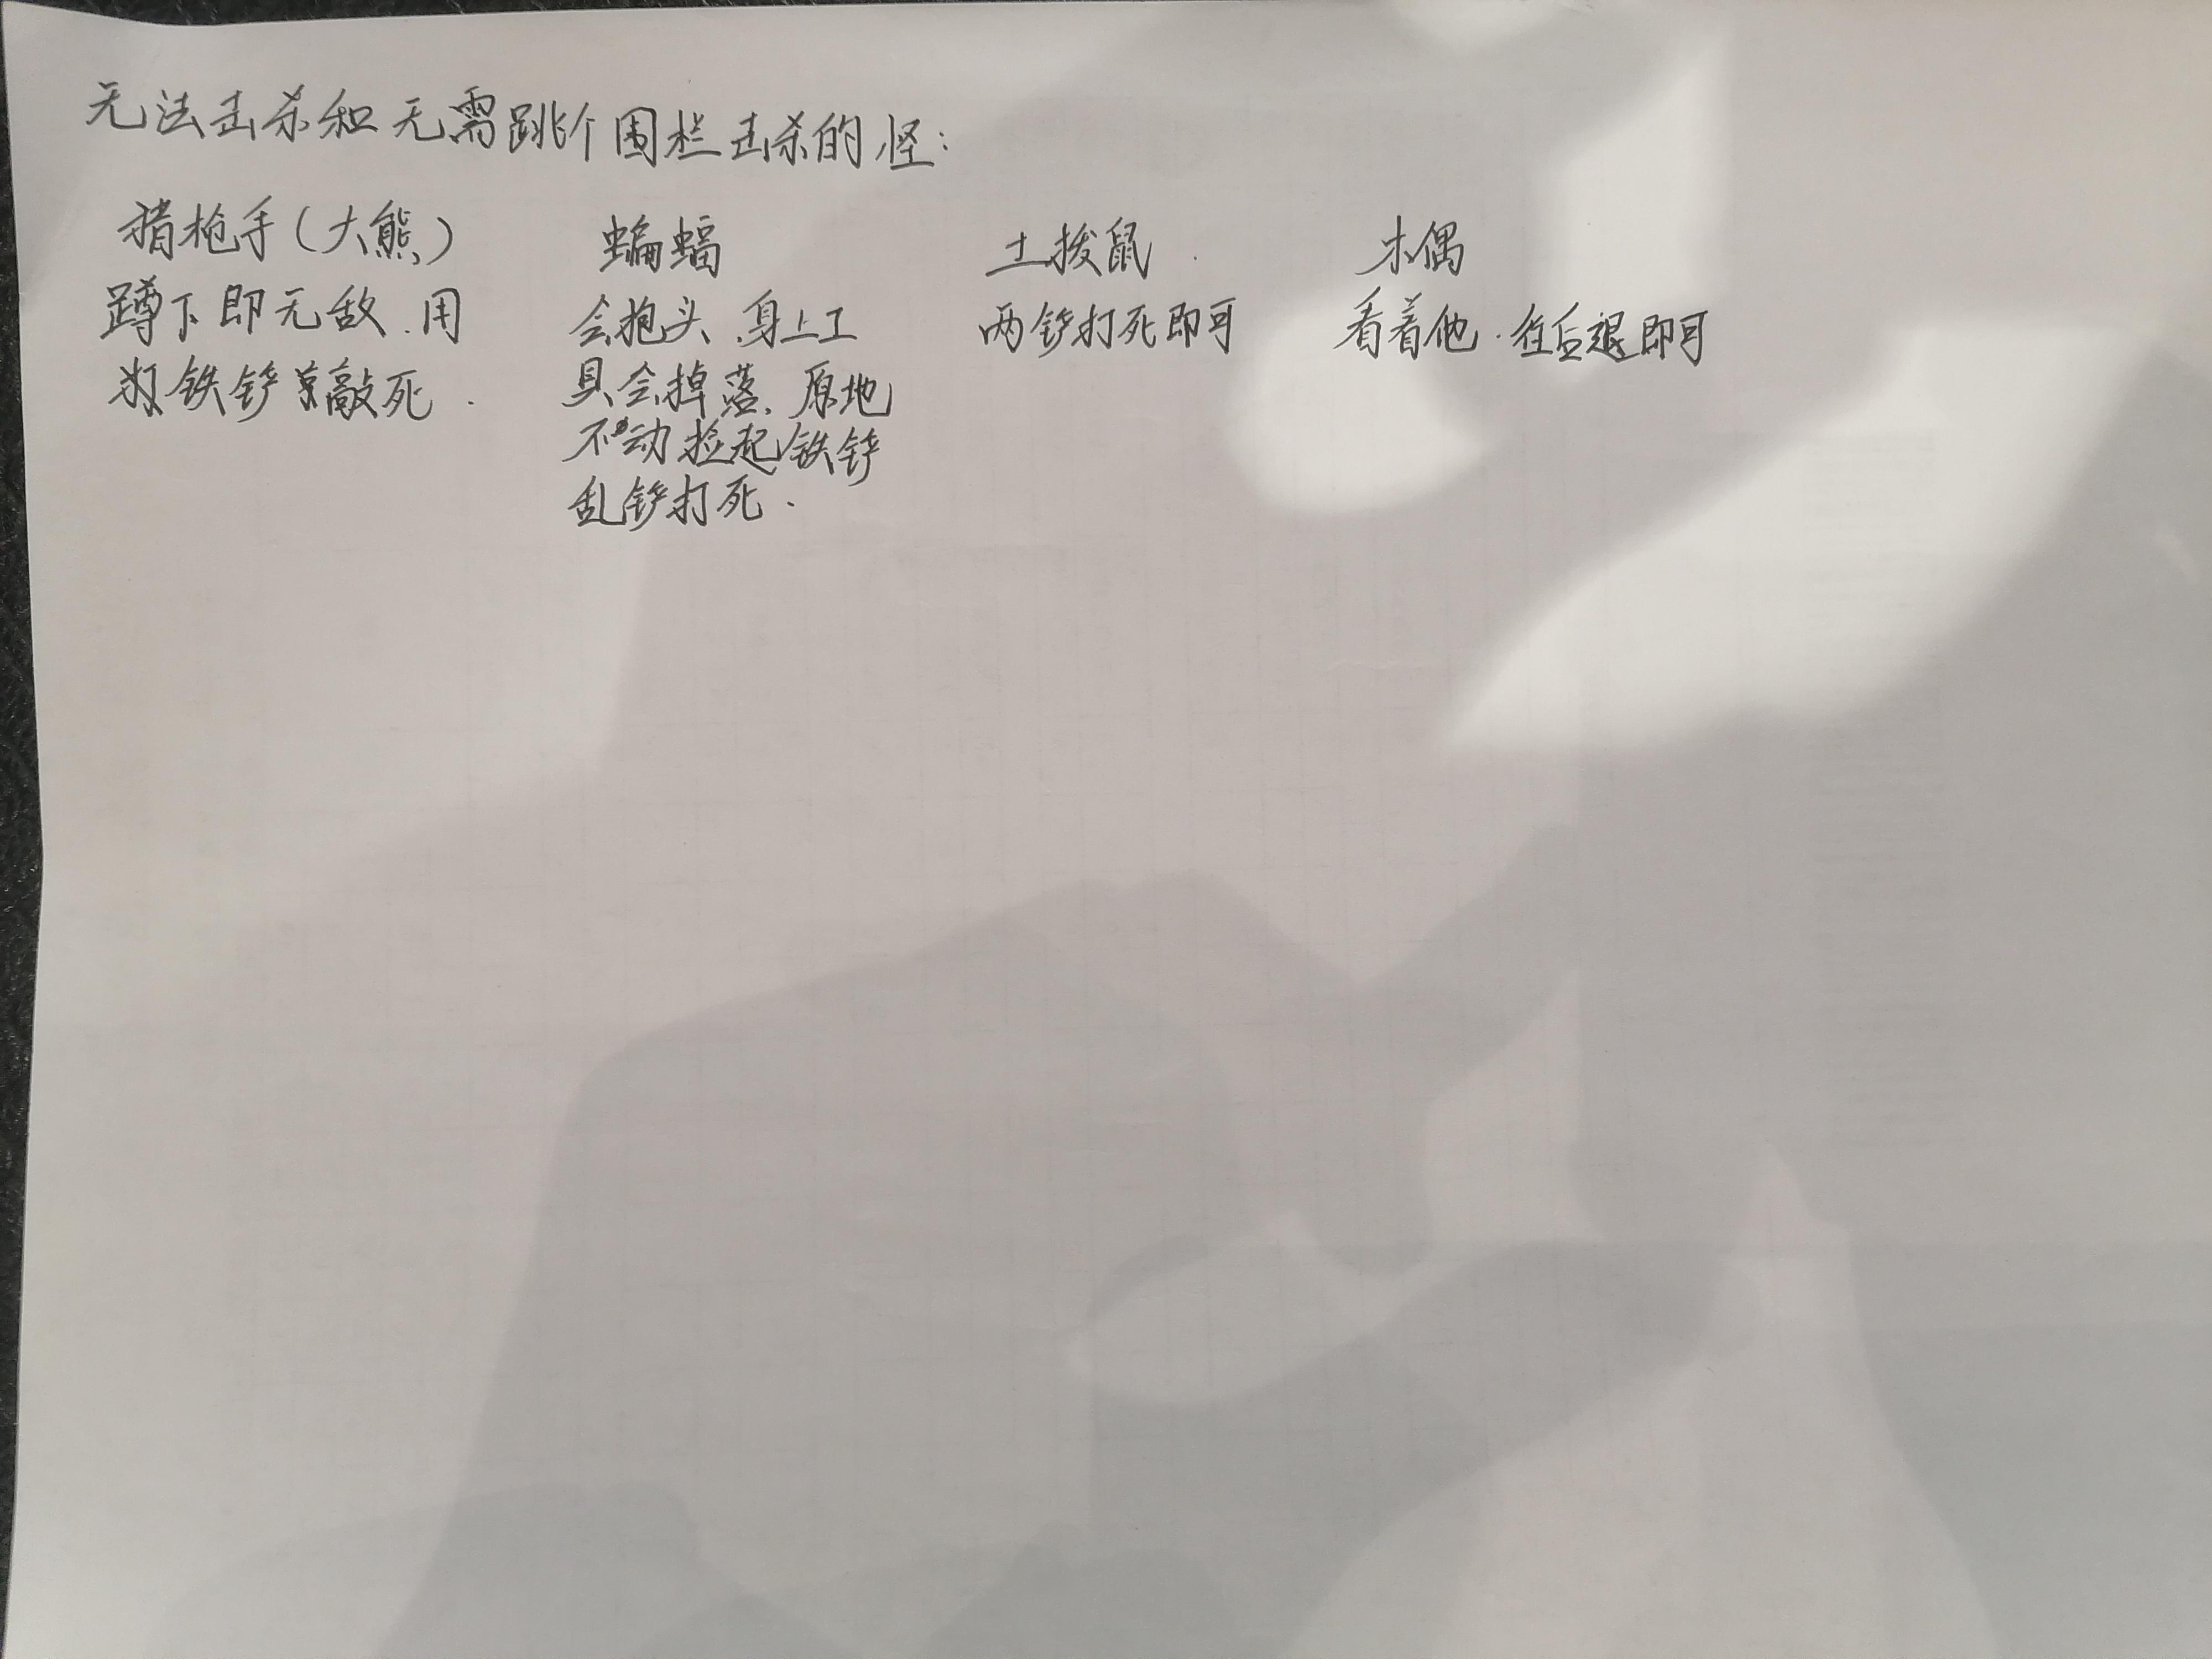 无法击杀和无需跳个围栏击杀的怪：
猎枪手（大熊）
蹲下即无敌．用
铁铲敲死．
蝙蝠
会抱头．身上工
具会掉落．原地
不动捡起铁铲
乱铲打死．
土拨鼠．
两铲打死即可
木偶
看着他．往后退即可